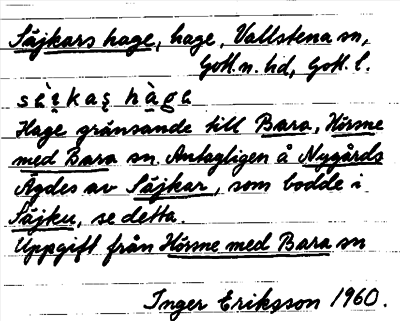 Säjkars hage, hage, Vallstena sn,
Gotl. n. hd, Gotl. l.
Hage gränsande till Bara, Hörsne
med Bara sn. Antagligen å Nygårds
Ägdes av Säjkar, som bodde i
Säjku, se detta.
Uppgift från Hörsne med Bara sn
Inger Eriksson 1960.